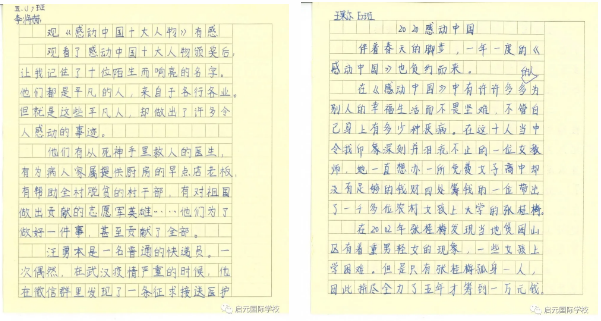 观《感动中国十大人物》有感
观看了感动中国十大人物颁奖后,
让我记住了十位陌生而响亮的名字。
他们都是平凡的人,来自于各行各业。
但就是这些平凡人,却做出了许多令
人感动的事迹。
他们有从死神手里救人的医生,
有为病人家属提供厨房的早点店老板,
有帮助全村脱贫的村干部,有对祖国
做出贡献的志愿军英雄……他们为了
做好一件事,甚至贡献了全部。
汪勇本是一名普通的快递员。一
次偶然,在武汉疫情严重的时候,他
在微信群里发现了一条征求接送医护
启元国际学校
2020感动中国
伴着春天的脚步,一年一度的《
感动中国》也负约而来。
在《感动中国》中有许许多多为
别人的幸福生活而不畏坚难,不管自
己身上有多少种疾病。在这十人当中
令我印象深刻并泪流不止的一位女教
师,她一直想办一所免费女子高中却
没有足够的钱财四处筹钱的一位带出
了一千多位农村女孩上大学的张桂梅。
在2002年张桂梅发现当地贫困山
区有着重男轻女的现象,一些女孩上
学困难。但是只有张桂梅孤身一人,
因此拼尽全力了五年才筹到一万元钱
启元国际学校